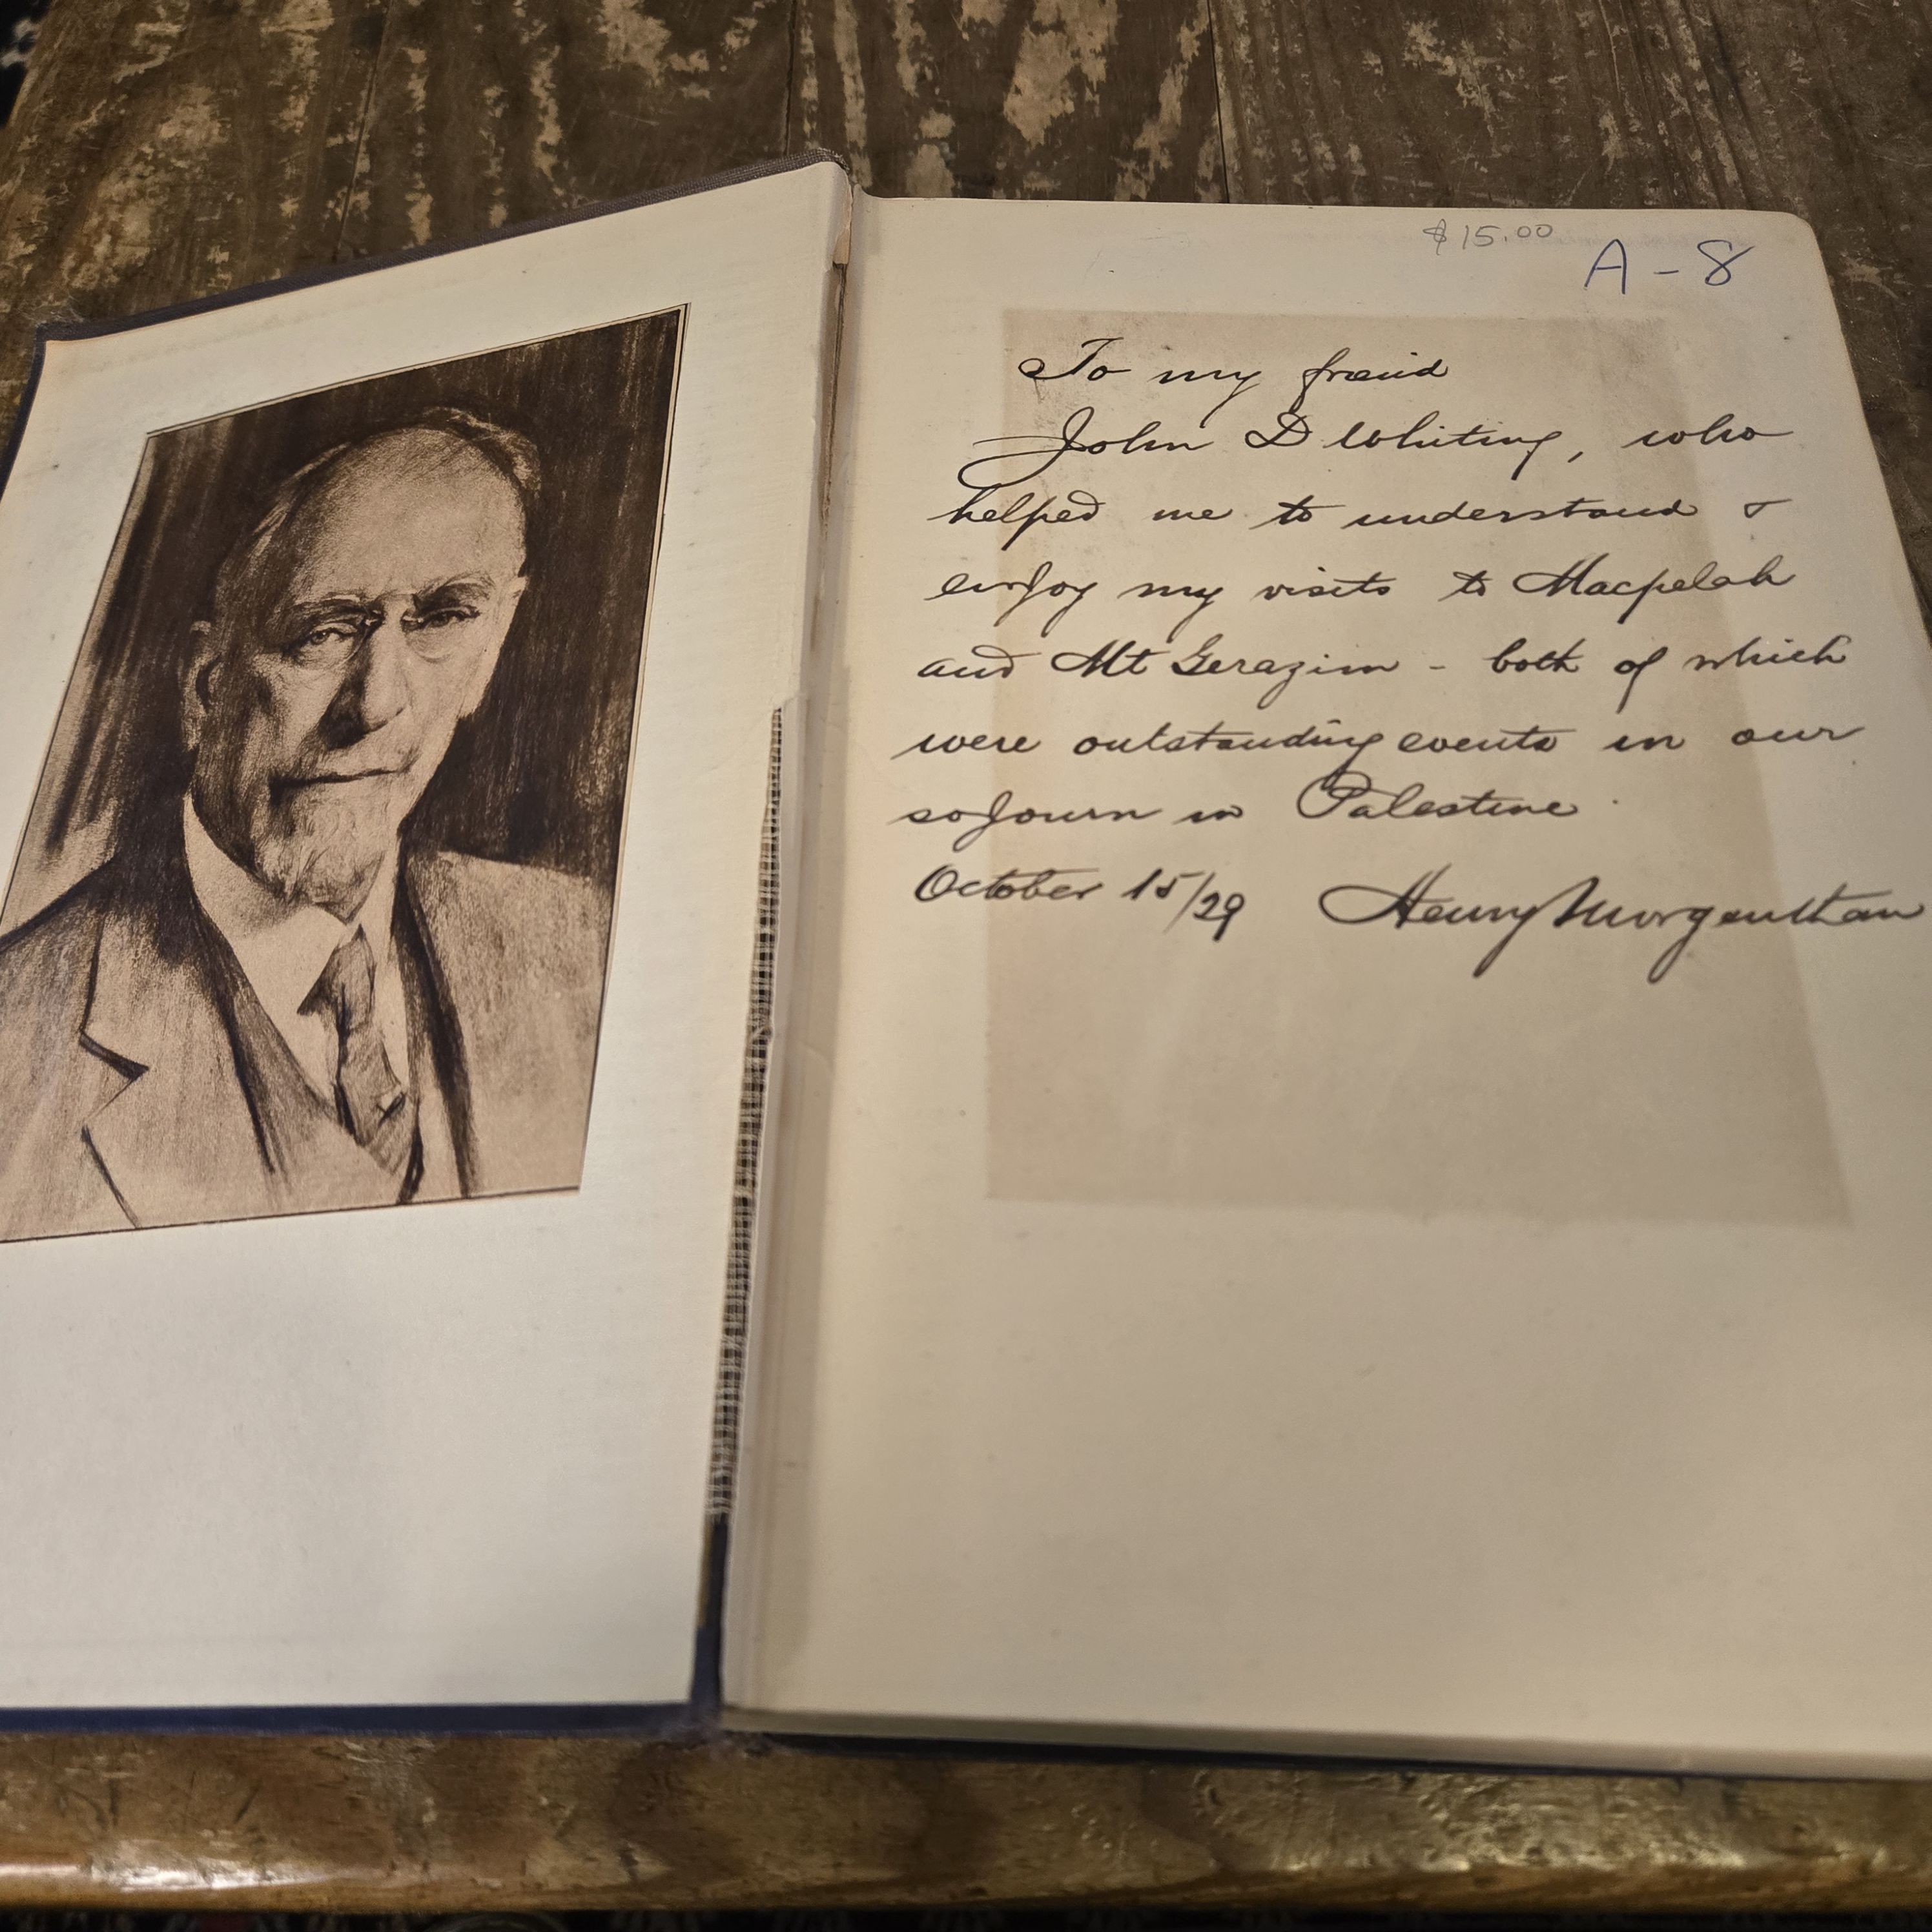 $15.00
A-8
To my friend
John D Whiting, who
helped me to understand &
enjoy my visits to Macpelah
and Mt Gerazim - both of which
were outstanding events in our
sojourn in Palestine.
October 15/29 Henry Morgenthau